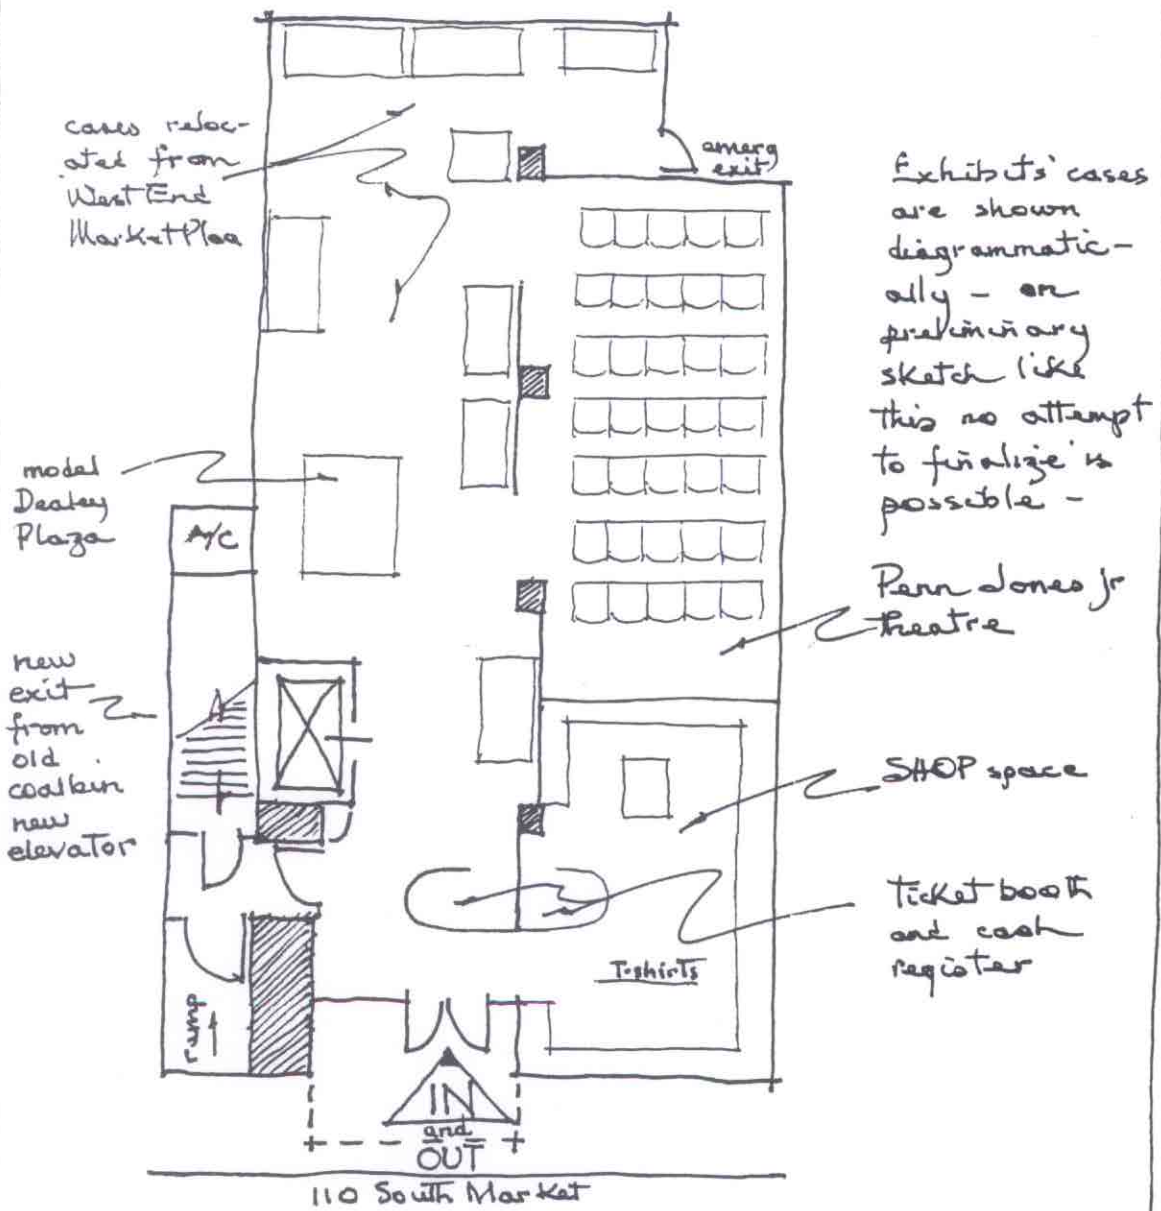 cases reloc-
ated from
West End
MarketPlac
emerg
exit
Exhibits' cases
are shown
diagrammatic-
ally - on
preliminary
sketch like
this no attempt
to finalize is
possible -
model
Dealey
Plaza
A/C
Penn Jones jr
Theatre
new
exit
from
old
coalbin
new
elevator
SHOP space
Ticket booth
and cash
register
T-shirts
ramp
IN
and
OUT
110 South Market